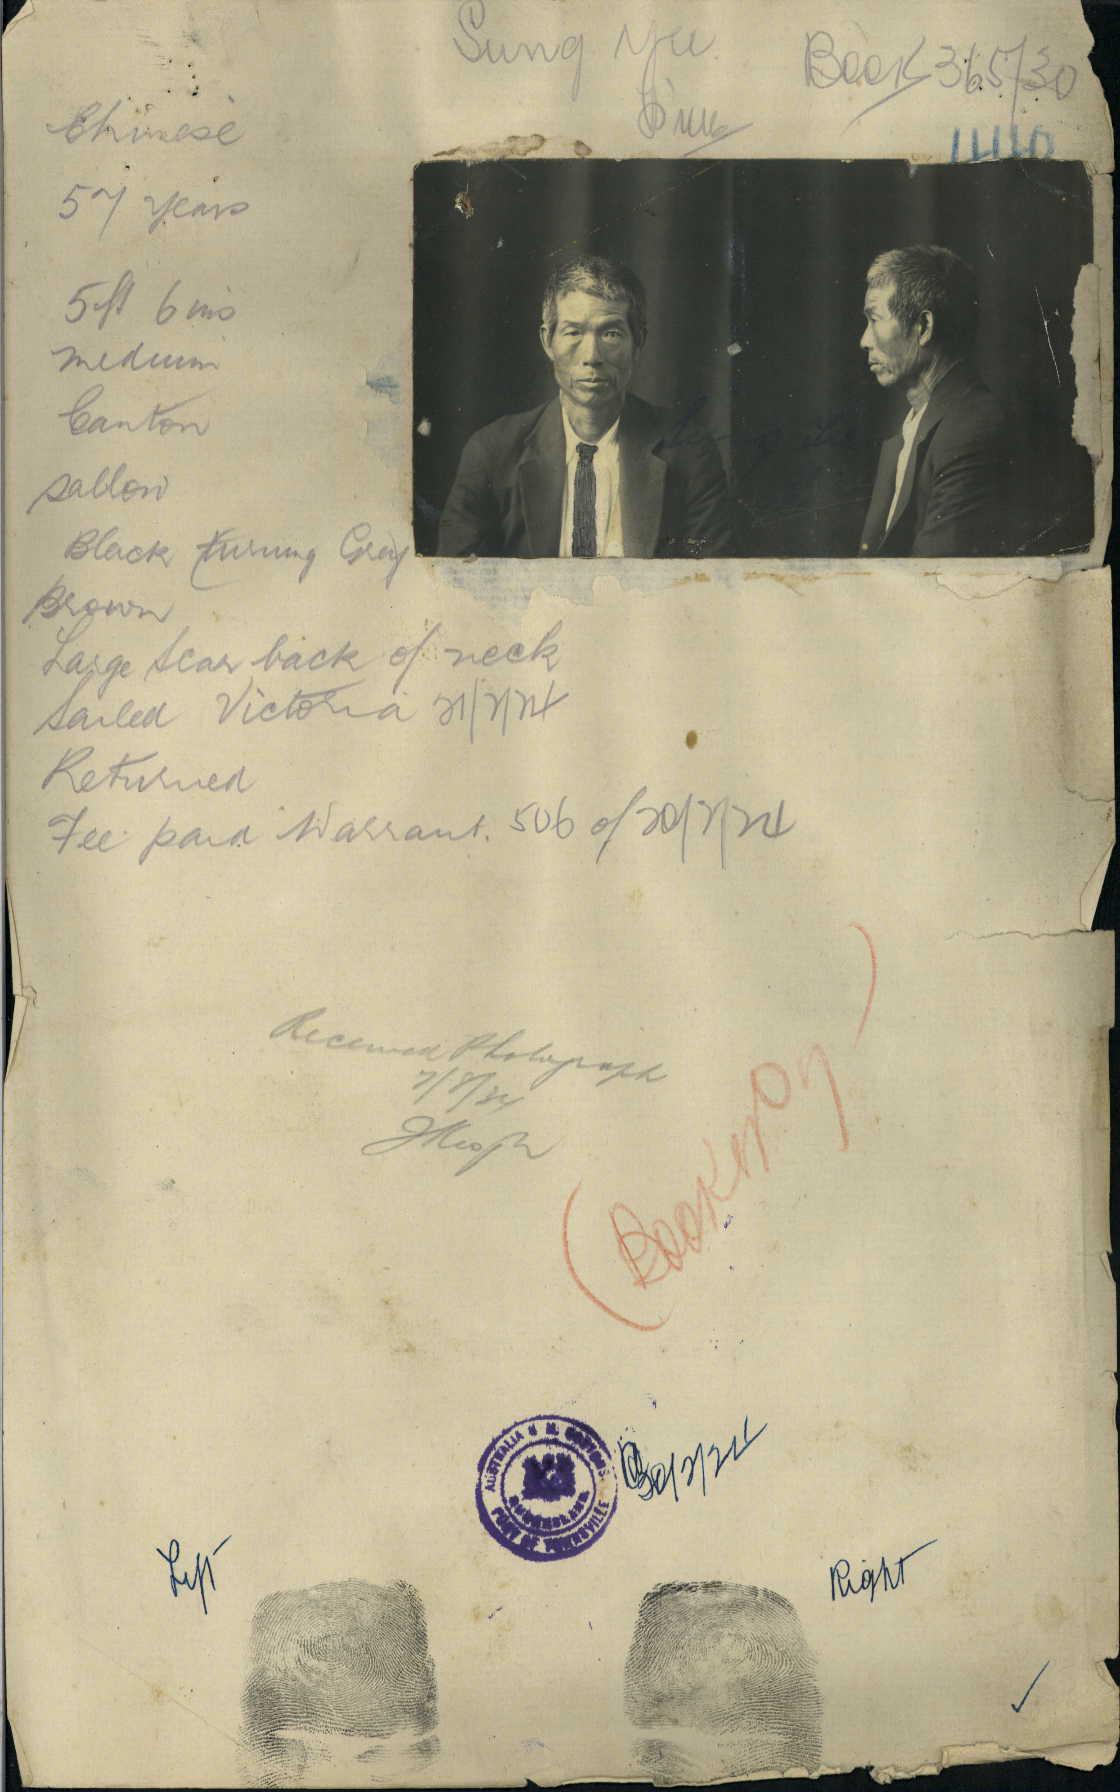 Sung Yee
Book 365/30
1440
Chinese
57 years
5 ft 6 ins
medium
Canton
sallow
Black turning Grey
Brown
Large Scar back of neck
Sailed Victoria 21/7/24
Returned
Fee paid Warrant. 506 of 20/7/24
Received Photograph
7/8/24
(Book No 7)
AUSTRALIA H. M. CUSTOMS
QUEENSLAND
PORT OF TOWNSVILLE
Left
Right